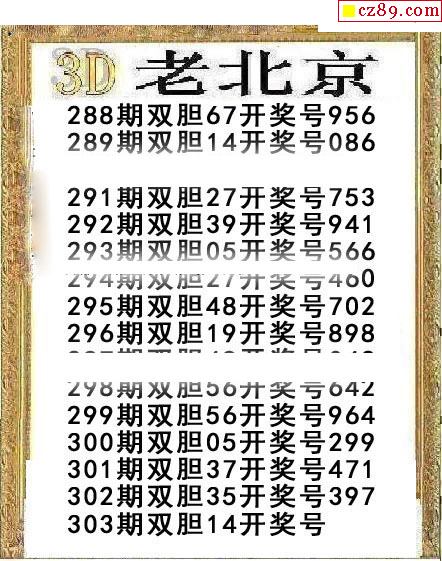 cz89.com
3D 老北京
288期双胆67开奖号956
289期双胆14开奖号086
291期双胆27开奖号753
292期双胆39开奖号941
293期双胆05开奖号566
294期双胆27开奖号460
295期双胆48开奖号702
296期双胆19开奖号898
期双胆 开奖号
298期双胆56开奖号642
299期双胆56开奖号964
300期双胆05开奖号299
301期双胆37开奖号471
302期双胆35开奖号397
303期双胆14开奖号